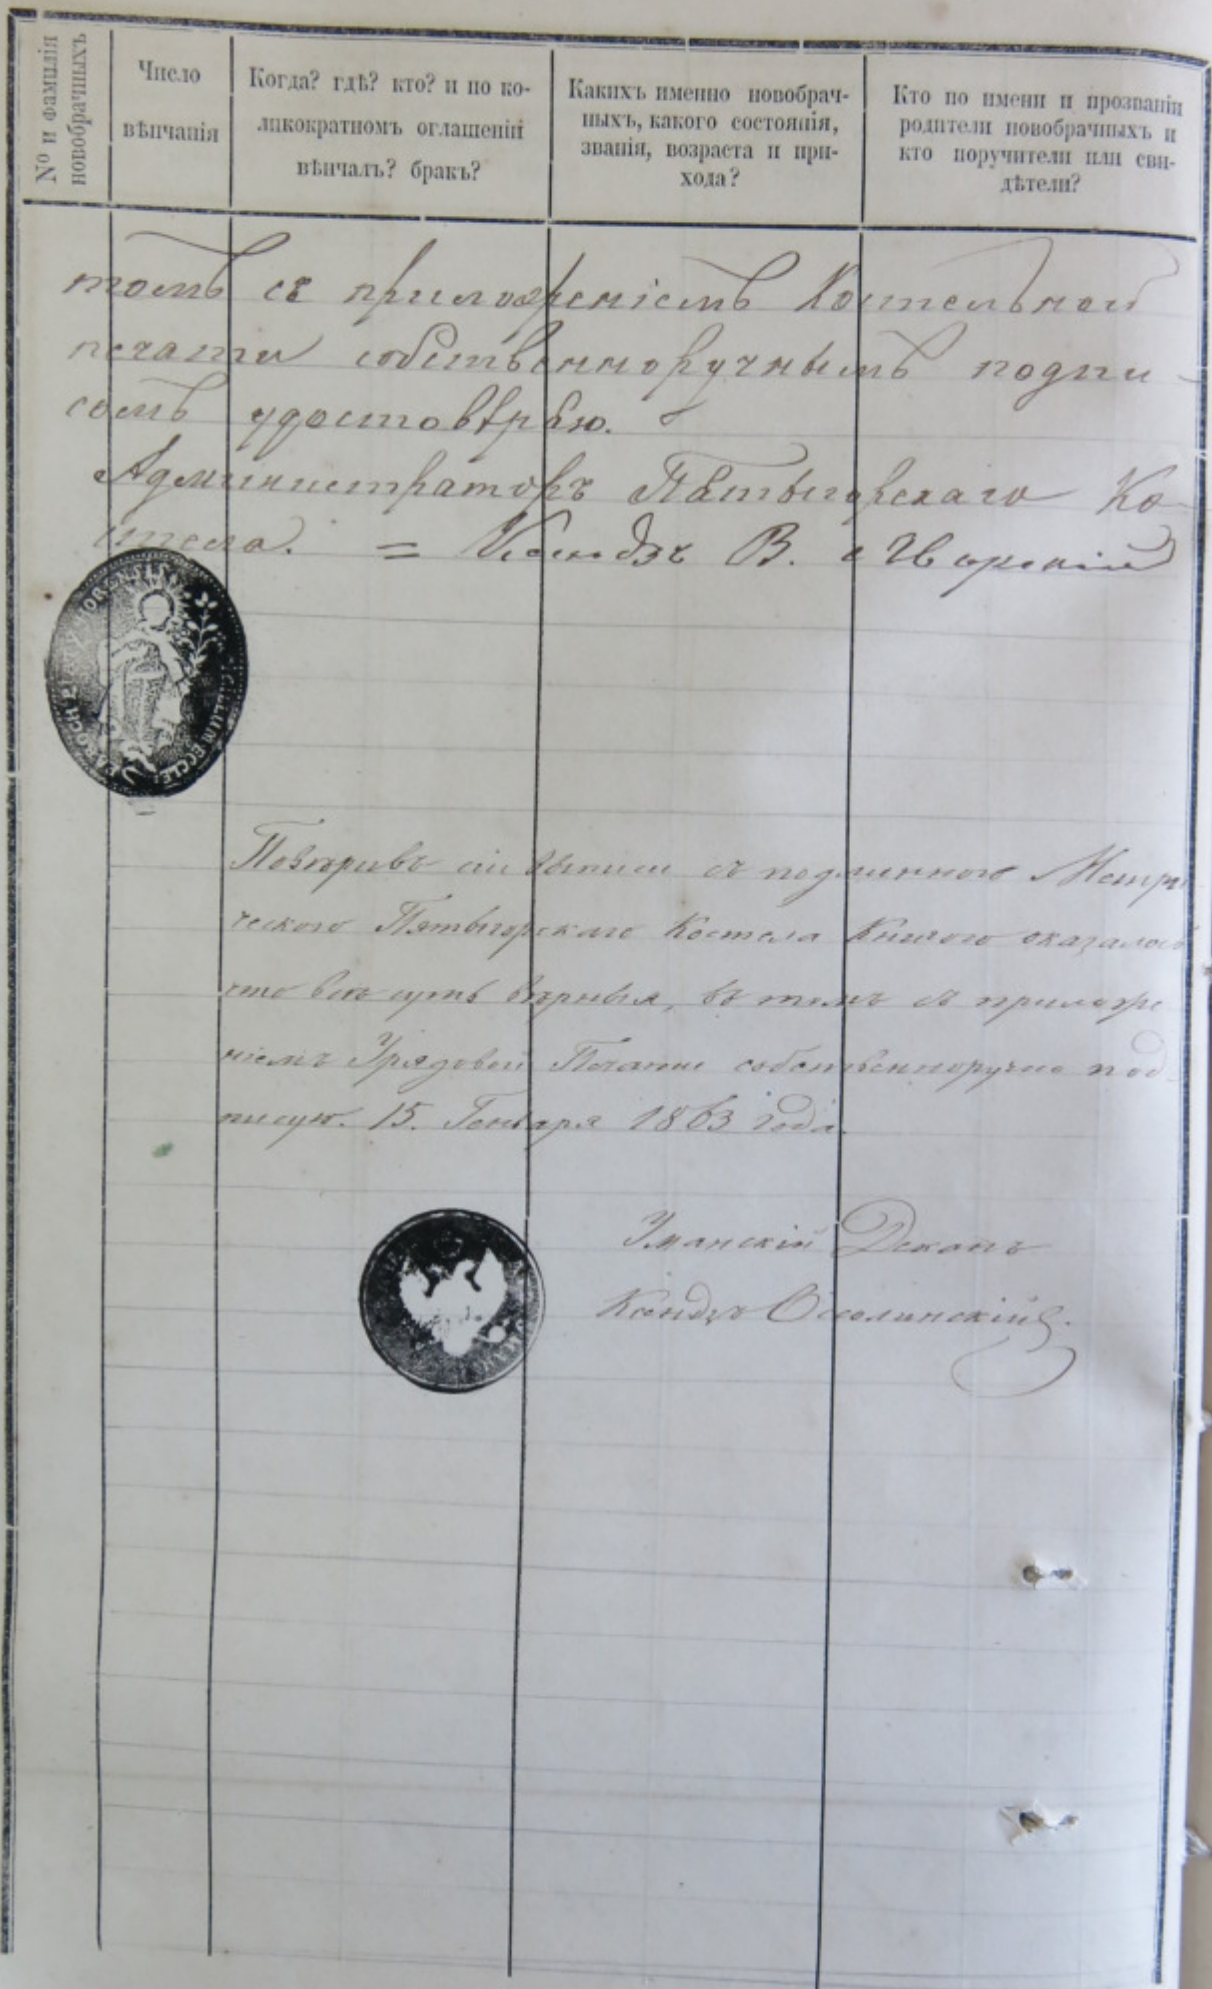 № и фамилія
новобрачныхъ
Число
вѣнчанія
Когда? гдѣ? кто? и по ко-
ликократномъ оглашеніи
вѣнчалъ? бракъ?
Какихъ именно новобрач-
ныхъ, какого состоянія,
званія, возраста и при-
хода?
Кто по имени и прозванію
родители новобрачныхъ и
кто поручители или сви-
дѣтели?
томъ съ приложеніемъ Костельной
печати собственноручнымъ подпи-
сомъ удостовѣряю.
Администраторъ Пятыгорскаго Ко-
стела. = Ксендзъ В.
SIGILLUM ECCLE: PAROCH:
Повѣривъ сіи выписи съ подлинною Метри
ческою Пятыгорскаго Костела Книгою оказалось
что всѣ суть вѣрныя, въ томъ съ приложе
ніемъ Урядовой Печати собственноручно под
писую. 15. Генваря 1863 года.
Уманскій Деканъ
Ксендзъ Осолинскій